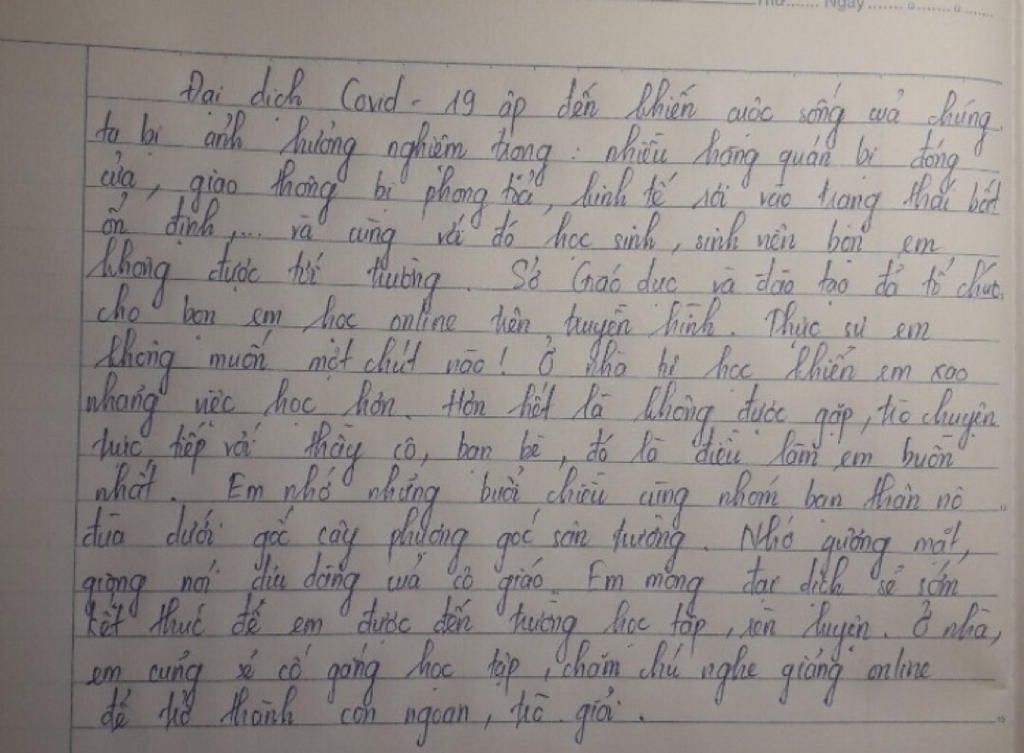 Thứ....... Ngày
Đại dịch Covid - 19 ập đến khiến cuộc sống của chúng
ta bị ảnh hưởng nghiêm trọng : nhiều hàng quán bị đóng
cửa, giao thông bị phong tỏa, kinh tế rơi vào trạng thái bất
ổn định,... và cùng với đó học sinh, sinh viên bọn em
không được tới trường. Sở Giáo dục và đào tạo đã tổ chức
cho bọn em học online trên truyền hình. Thực sự em
không muốn một chút nào! Ở nhà tự học khiến em xao
nhãng việc học hơn. Hơn hết là không được gặp, trò chuyện
trực tiếp với thầy cô, bạn bè, đó là điều làm em buồn
nhất. Em nhớ những buổi chiều cùng nhóm bạn thân nô
đùa dưới gốc cây phượng góc sân trường. Nhớ gương mặt,
giọng nói dịu dàng của cô giáo. Em mong đại dịch sẽ sớm
kết thúc để em được đến trường học tập, rèn luyện. Ở nhà,
em cũng sẽ cố gắng học tập, chăm chú nghe giảng online
để trở thành con ngoan, trò giỏi.